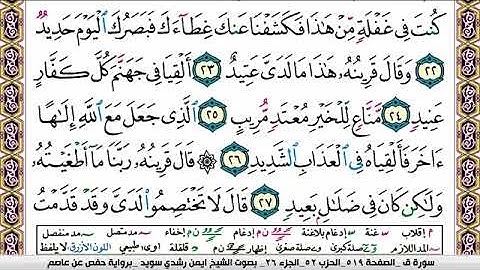 كُنتَ فِى غَفْلَةٍ مِّنْ هَٰذَا فَكَشَفْنَا عَنكَ غِطَآءَكَ فَبَصَرُكَ ٱلْيَوْمَ حَدِيدٌ
٢٢ وَقَالَ قَرِينُهُۥ هَٰذَا مَا لَدَىَّ عَتِيدٌ ٢٣ أَلْقِيَا فِى جَهَنَّمَ كُلَّ كَفَّارٍ
عَنِيدٍ ٢٤ مَّنَّاعٍ لِّلْخَيْرِ مُعْتَدٍ مُّرِيبٍ ٢٥ ٱلَّذِى جَعَلَ مَعَ ٱللَّهِ إِلَٰهًا
ءَاخَرَ فَأَلْقِيَاهُ فِى ٱلْعَذَابِ ٱلشَّدِيدِ ٢٦ ۞ قَالَ قَرِينُهُۥ رَبَّنَا مَآ أَطْغَيْتُهُۥ
وَلَٰكِن كَانَ فِى ضَلَٰلٍۭ بَعِيدٍ ٢٧ قَالَ لَا تَخْتَصِمُوا۟ لَدَىَّ وَقَدْ قَدَّمْتُ
م إقلاب س غنة س إدغام بلاغنة ن م إخفاء مد متصل مد منفصل
المد اللازم صلة كبرى وصلة صغرى إظهار ن م قلقلة أوى: طبيعي اللون الأزرق: لا يلفظ
سورة ق . الصفحة ٥١٩ . الحزب ٥٢ . الجزء ٢٦ . بصوت الشيخ ايمن رشدي سويد . برواية حفص عن عاصم